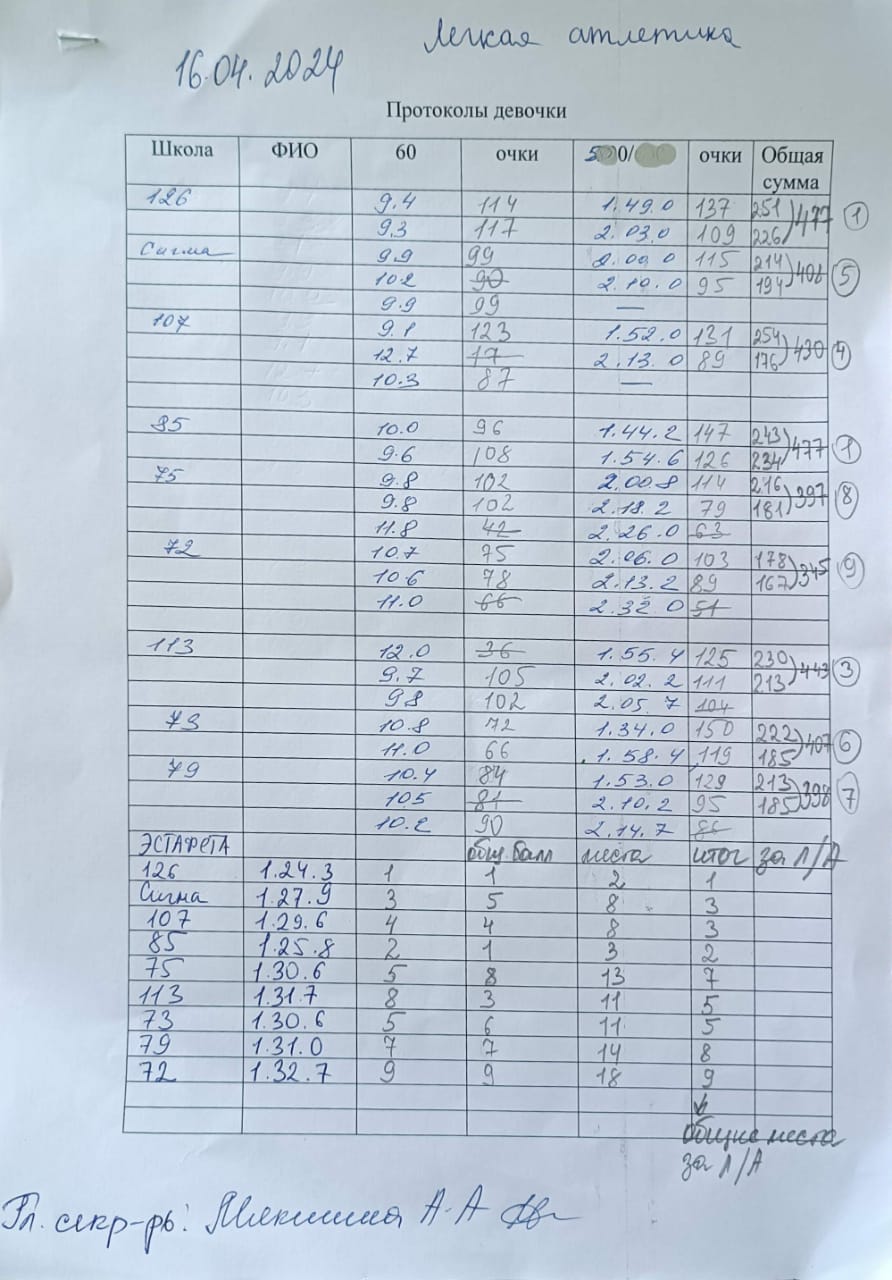 Легкая атлетика
16.04.2024
Протоколы девочки
Школа ФИО 60 очки 500/ очки Общая сумма
126 9.4 114 1.49.0 137 251 477 1
9.3 117 2.03.0 109 226
Сигма 9.9 99 2.00.0 115 214 408 5
10.2 90 2.10.0 95 194
9.9 99 —
107 9.1 123 1.52.0 131 254 430 4
12.7 17 2.13.0 89 176
10.3 87 —
85 10.0 96 1.44.2 147 243 477 1
9.6 108 1.54.6 126 234
75 9.8 102 2.00.8 114 216 397 8
9.8 102 2.18.2 79 181
11.8 42 2.26.0 63
72 10.7 75 2.06.0 103 178 345 9
10.6 78 2.13.2 89 167
11.0 66 2.32.0 51
113 12.0 36 1.55.4 125 230 443 3
9.7 105 2.02.2 111 213
98 102 2.05.7 104
73 10.8 72 1.34.0 150 222 407 6
11.0 66 1.58.4 119 185
79 10.4 84 1.53.0 129 213 398 7
105 81 2.10.2 95 185
10.2 90 2.14.7 86
ЭСТАФЕТА общ. балл места итог за Л/А
126 1.24.3 1 1 2 1
Сигма 1.27.9 3 5 8 3
107 1.29.6 4 4 8 3
85 1.25.8 2 1 3 2
75 1.30.6 5 8 13 7
113 1.31.7 8 3 11 5
73 1.30.6 5 6 11 5
79 1.31.0 7 7 14 8
72 1.32.7 9 9 18 9
общие места
за Л/А
Гл. секр-рь: А.А